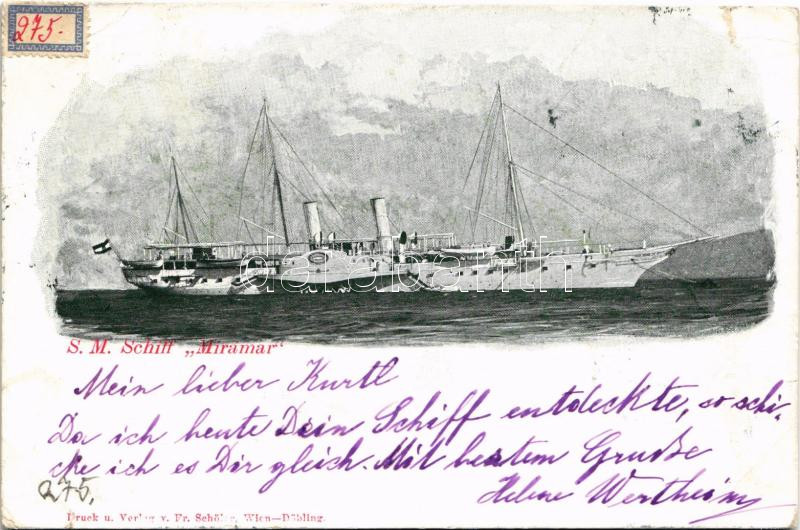 275.-
S. M. Schiff „Miramar"
Mein lieber Kurtl
Da ich heute Dein Schiff entdeckte, so schi-
cke ich es Dir gleich. Mit bestem Gruße
Helene Wertheim
275.
Druck u. Verlag v. Fr. Schöler, Wien—Döbling.
darabanth